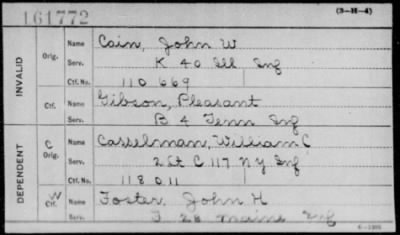 161772 (3-H-4)
INVALID
Orig. Name Cain, John W
Serv. K 40 Ill Inf
Ctf. No. 110 669
Ctf. Name Gibson, Pleasant
Serv. B 4 Tenn Inf
DEPENDENT
C Orig. Name Casselman, William C
Serv. 2 Lt C 117 N Y Inf
Ctf. No. 118 011
W Ctf. Name Foster, John H
Serv. 28 Maine Inf